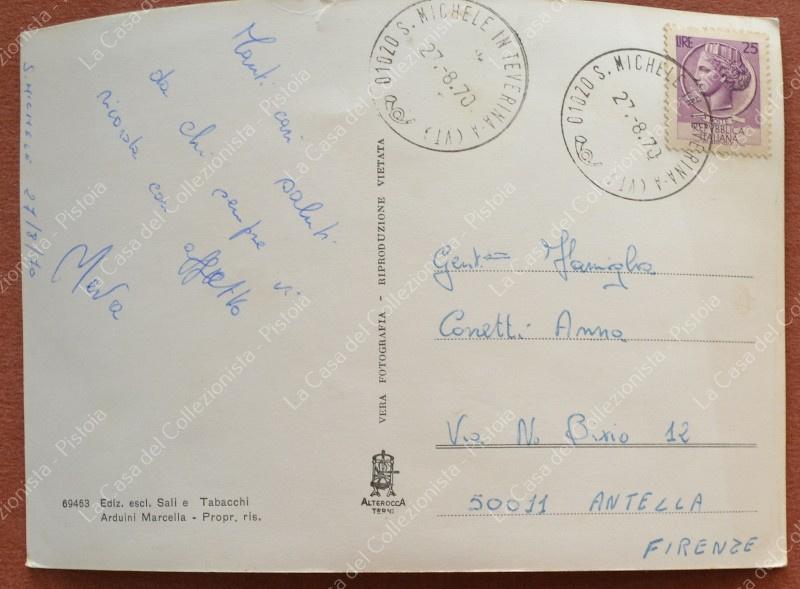 S. MICHELE 27/8/70
Tanti cari saluti
da chi sempre vi
ricorda con affetto
01020 S. MICHELE IN TEVERINA-A (VT)
27.-8.70
01020 S. MICHELE IN TEVERINA-A (VT)
27.-8.70
LIRE 25
POSTE
REPVBBLICA
ITALIANA
VERA FOTOGRAFIA - RIPRODUZIONE VIETATA
Gent.ma Famiglia
Anna
Via N. Bixio 12
50011 ANTELLA
FIRENZE
69463 Ediz. escl. Sali e Tabacchi
Arduini Marcella - Propr. ris.
ALTEROCCA
TERNI
La Casa del Collezionista - Pistoia